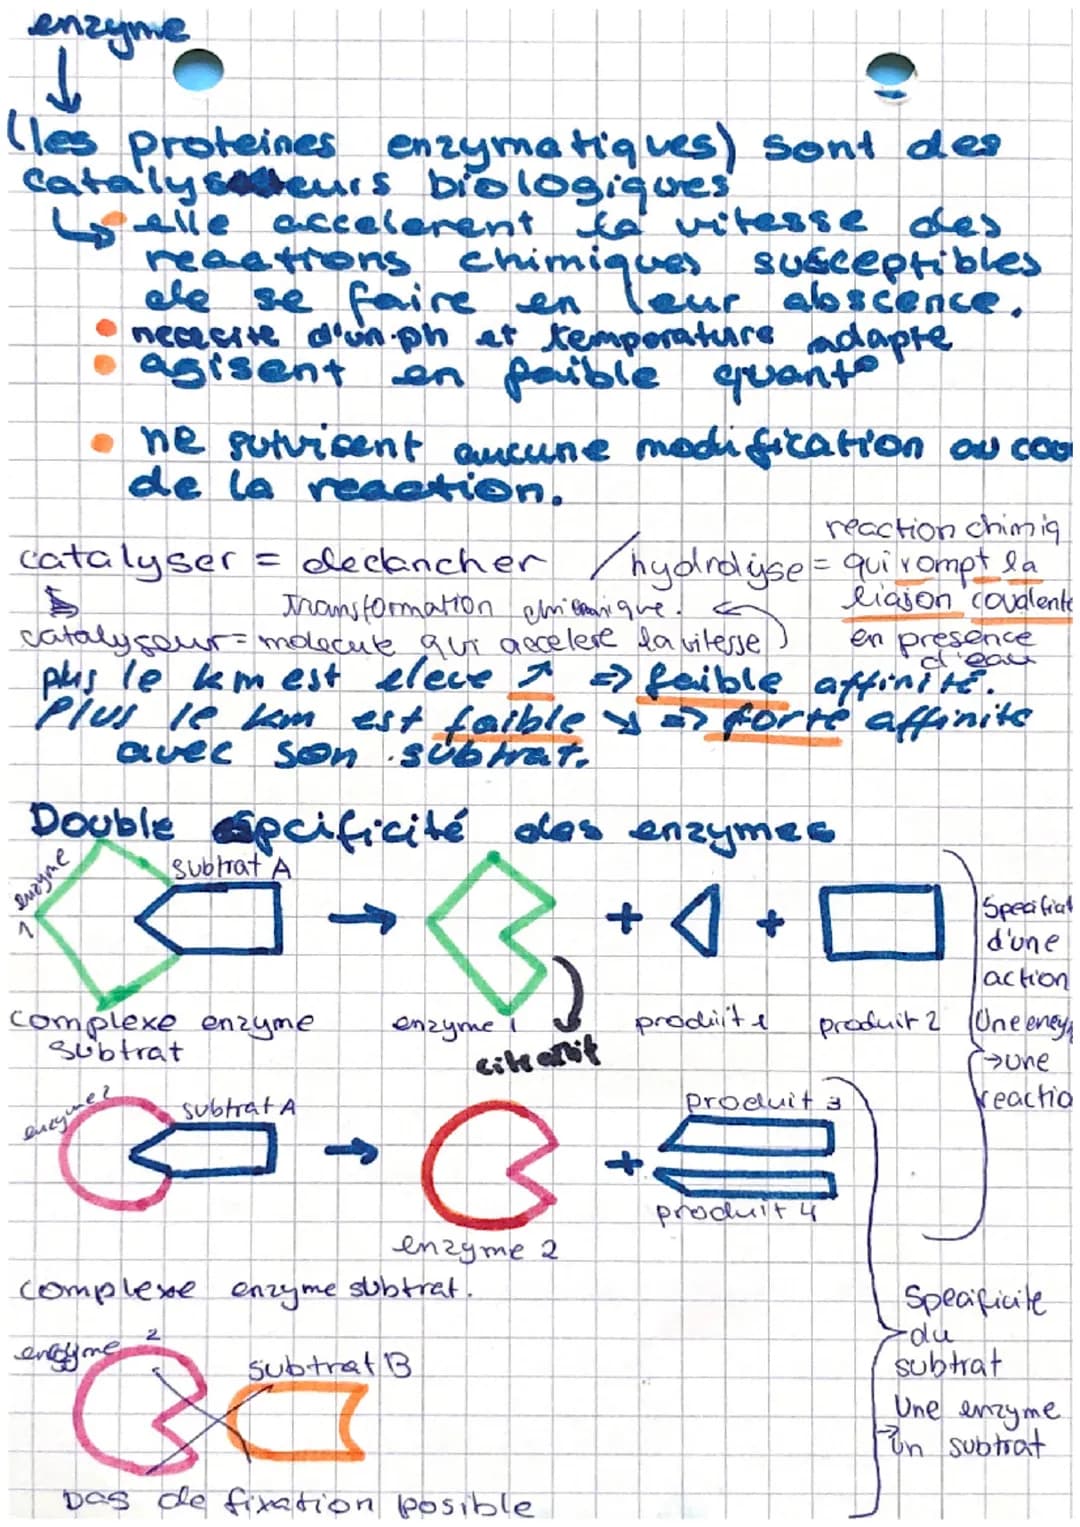 enzyme
(les proteines enzymatiques) sont des
catalyseurs biologiques
elle accelerent la vitesse des
reactions chimiques susceptibles
de se faire en leur abscence.
nececite d'un ph et temperature adapte
agisent en faible quant°
ne suivisent aucune modification au cou
de la reaction.
reaction chimiq
catalyser = declancher / hydrolyse = qui rompt la
transformation chimique. liaison covalente
catalyseur = molecule qui accelere la vitesse en presence
d'eau
plus le km est eleve ↗ => faible affinité.
Plus le km est faible ↘ => forte affinite
avec son subtrat.
Double spcificité des enzymes
enzyme 1
subtrat A
+ +
complexe enzyme subtrat
enzyme 1
produit 1
produit 2
d'une
action
→ une
reactio
enzyme 2
subtrat A
produit 3
+
produit 4
enzyme 2
complexe enzyme subtrat.
Specificite
du
subtrat
Une enzyme
→ un subtrat
enzyme 2
subtrat B
pas de fixation posible